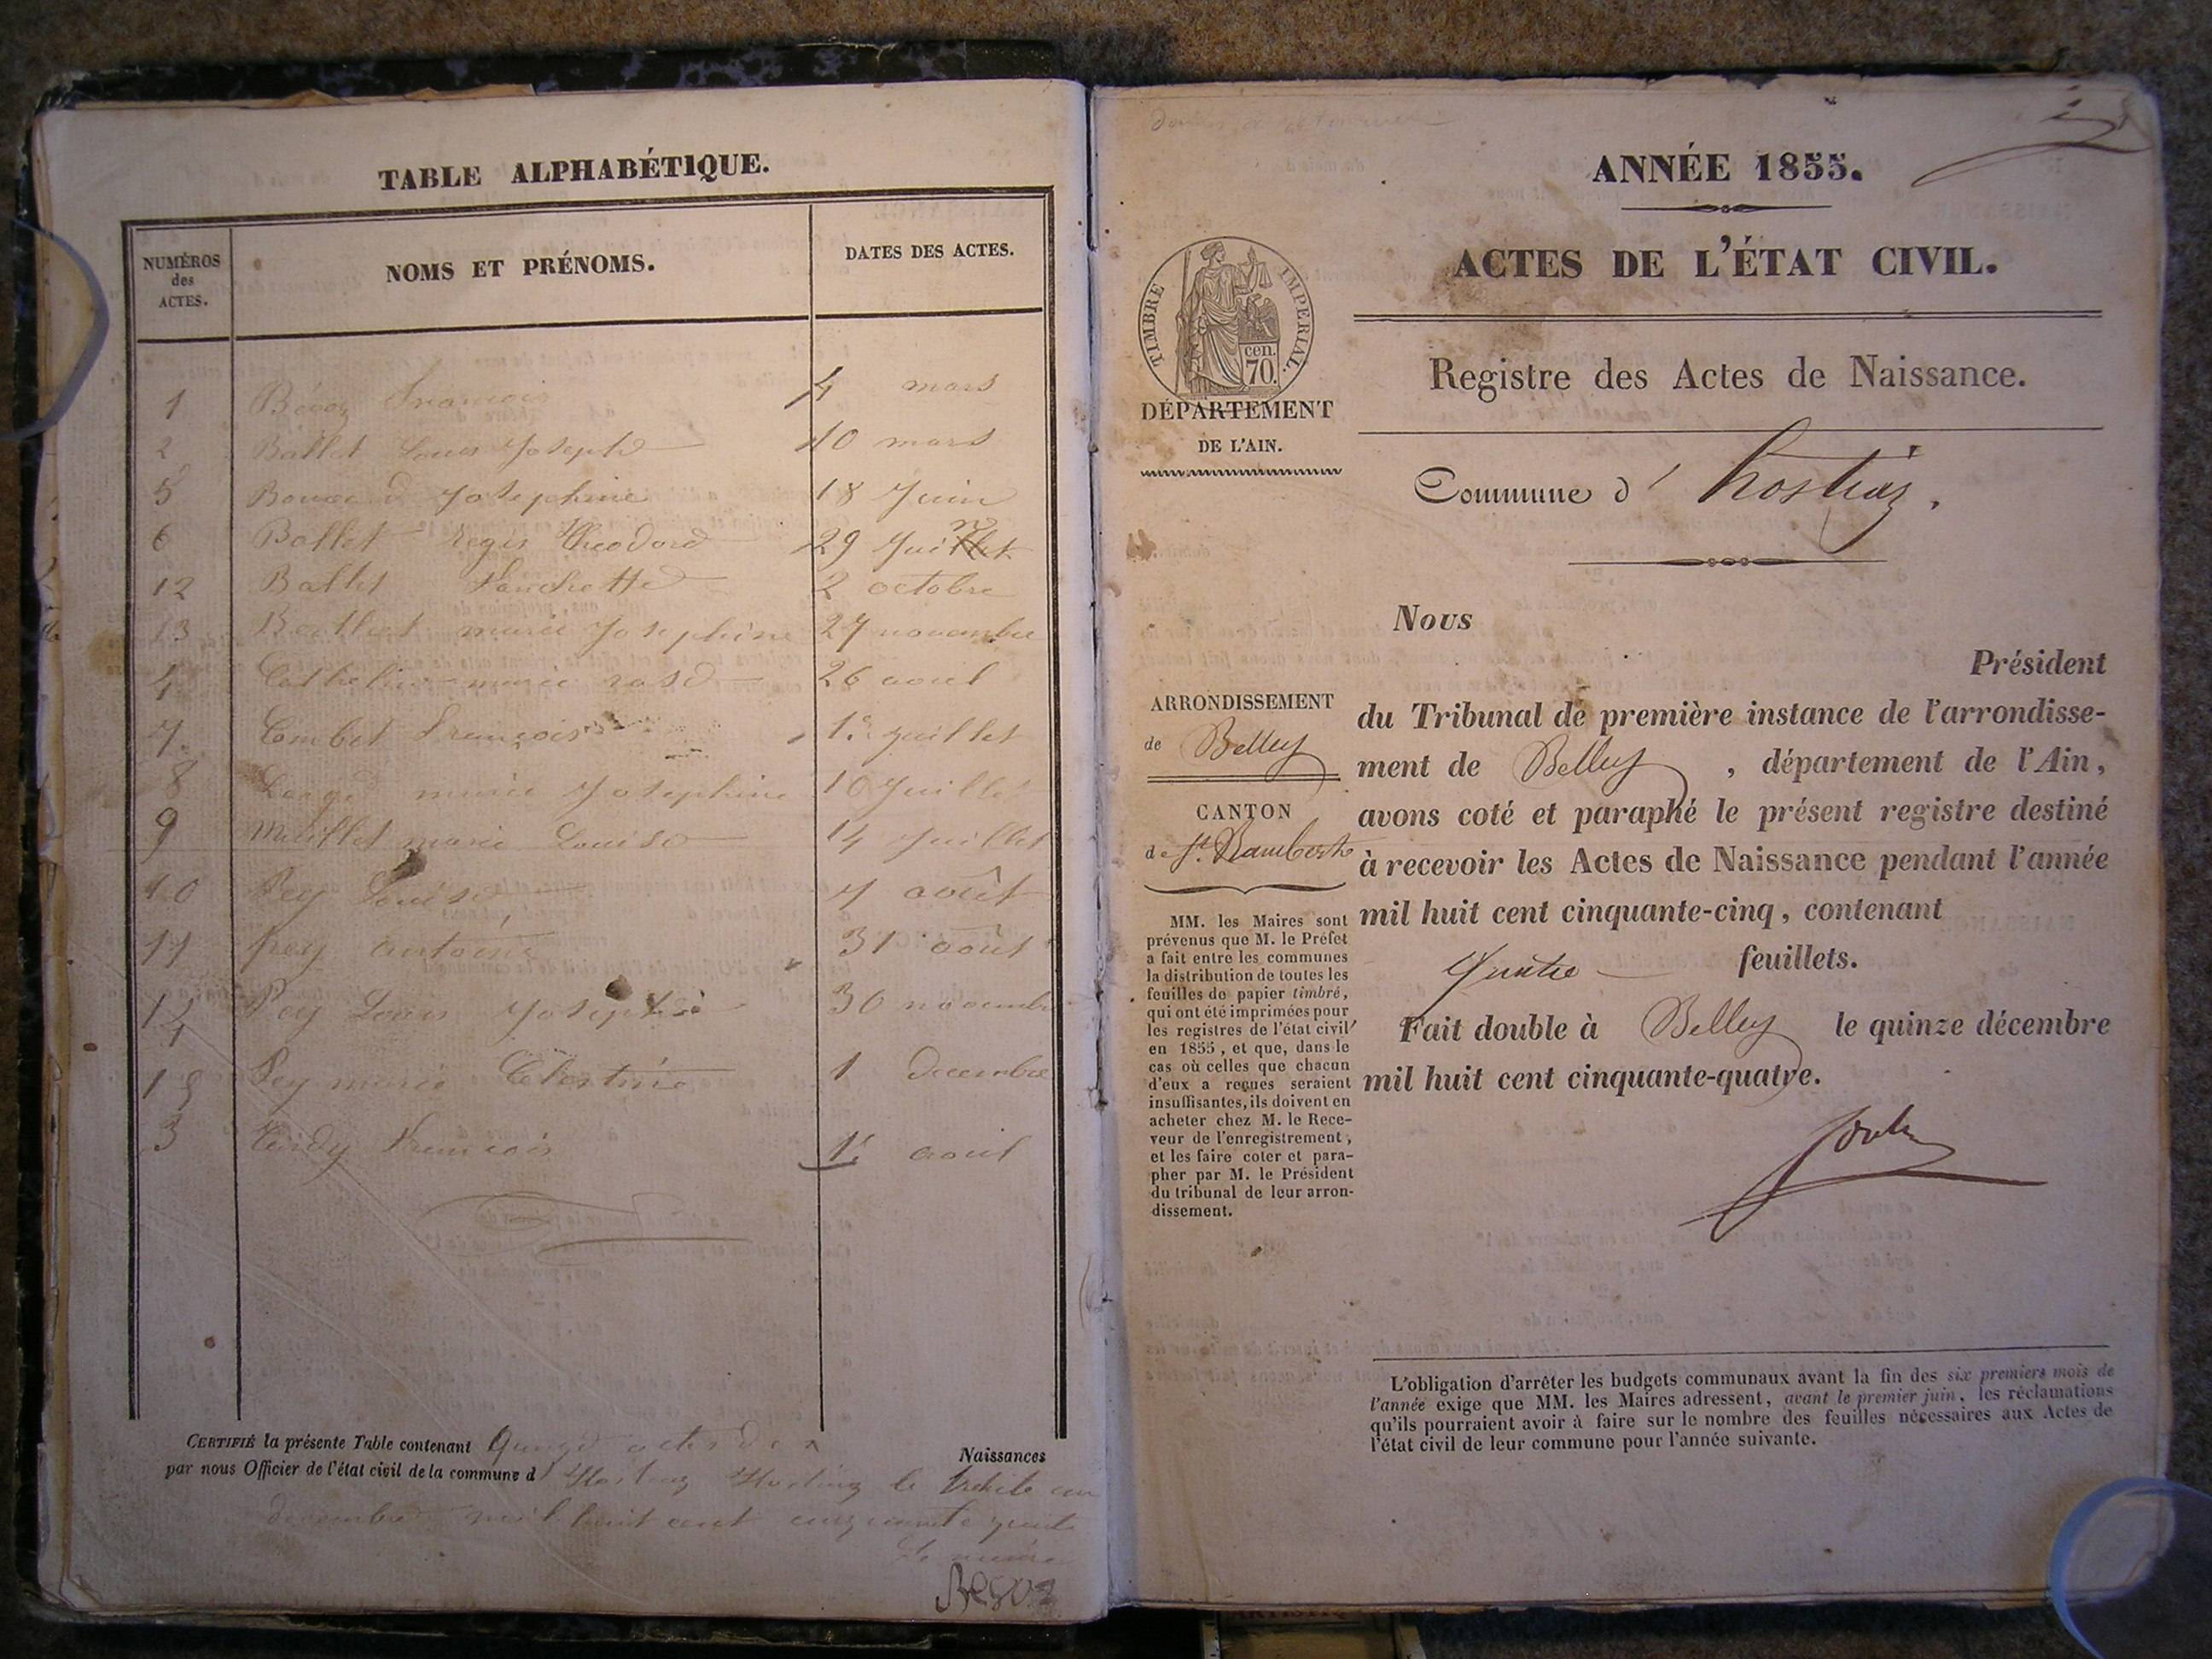 TABLE ALPHABÉTIQUE.
NUMÉROS
des
ACTES.
NOMS ET PRÉNOMS.
DATES DES ACTES.
1 François 4 mars
2 Ballet Louis Joseph 10 mars
5 Josephine 18 Juin
6 Ballet regis théodore 29 Juin
12 Ballet Fanchette 2 octobre
13 Berthet marie Josephine 27 novembre
4 marie rose 26 avril
7 Combet François 1er Juillet
8 marie Josephine 10 Juillet
9 marie Louise 14 Juillet
10 Pey Louise 7 août
11 Pey antoine 31 août
14 Pey Louis Joseph 30 novembre
15 Pey marie Celestine 1 decembre
3 François 1er avril
CERTIFIÉ la présente Table contenant Quinze actes de Naissances
par nous Officier de l'état civil de la commune d' Hostiaz Hostiaz le trente un
decembre mil huit cent cinquante quatre
Le maire
Begoz
ANNÉE 1855.
ACTES DE L'ÉTAT CIVIL.
TIMBRE IMPERIAL.
cen.
70.
DÉPARTEMENT
DE L'AIN.
Registre des Actes de Naissance.
Commune d' hostiaz.
ARRONDISSEMENT
de Belley
CANTON
de St. Rambert
MM. les Maires sont
prévenus que M. le Préfet
a fait entre les communes
la distribution de toutes les
feuilles de papier timbré,
qui ont été imprimées pour
les registres de l'état civil
en 1855, et que, dans le
cas où celles que chacun
d'eux a reçues seraient
insuffisantes, ils doivent en
acheter chez M. le Rece-
veur de l'enregistrement,
et les faire coter et para-
pher par M. le Président
du tribunal de leur arron-
dissement.
Nous
Président
du Tribunal de première instance de l'arrondisse-
ment de Belley, département de l'Ain,
avons coté et paraphé le présent registre destiné
à recevoir les Actes de Naissance pendant l'année
mil huit cent cinquante-cinq, contenant
quatre feuillets.
Fait double à Belley le quinze décembre
mil huit cent cinquante-quatre.
L'obligation d'arrêter les budgets communaux avant la fin des six premiers mois de
l'année exige que MM. les Maires adressent, avant le premier juin, les réclamations
qu'ils pourraient avoir à faire sur le nombre des feuilles nécessaires aux Actes de
l'état civil de leur commune pour l'année suivante.